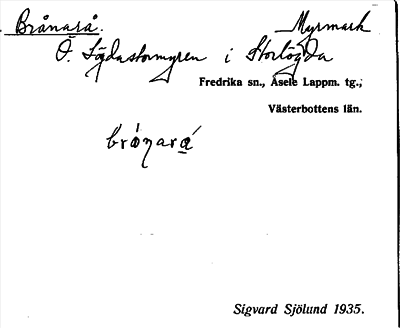 Brånarå. Myrmark
Ö. Lögdastormyren i Storlögda
Fredrika sn., Åsele Lappm. tg.,
Västerbottens län.
Sigvard Sjölund 1935.